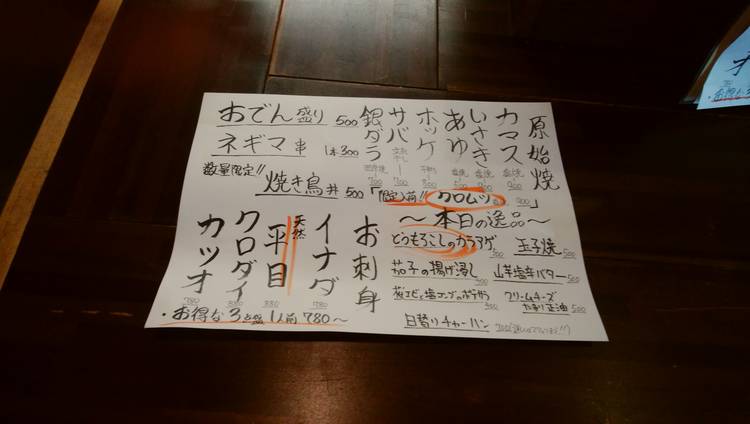 おでん盛り 500
ネギマ串 1本300
数量限定!!
焼き鳥丼 500
原始焼
カマス 塩焼 900
いさき 塩焼 900
あゆ 塩焼 500
ホッケ 800
サバ 700
銀ダラ 700
「限定入荷!! クロムツ 900」
お刺身
イナダ 780
天然
平目 880
クロダイ
カツオ 780
・お得な3点盛1人前 780〜
〜本日の逸品〜
とうもろこしのカラアゲ
茄子の揚げ浸し
日替りチャーハン
玉子焼 500
山芋塩辛バター 500
クリームチーズ
500
お得な